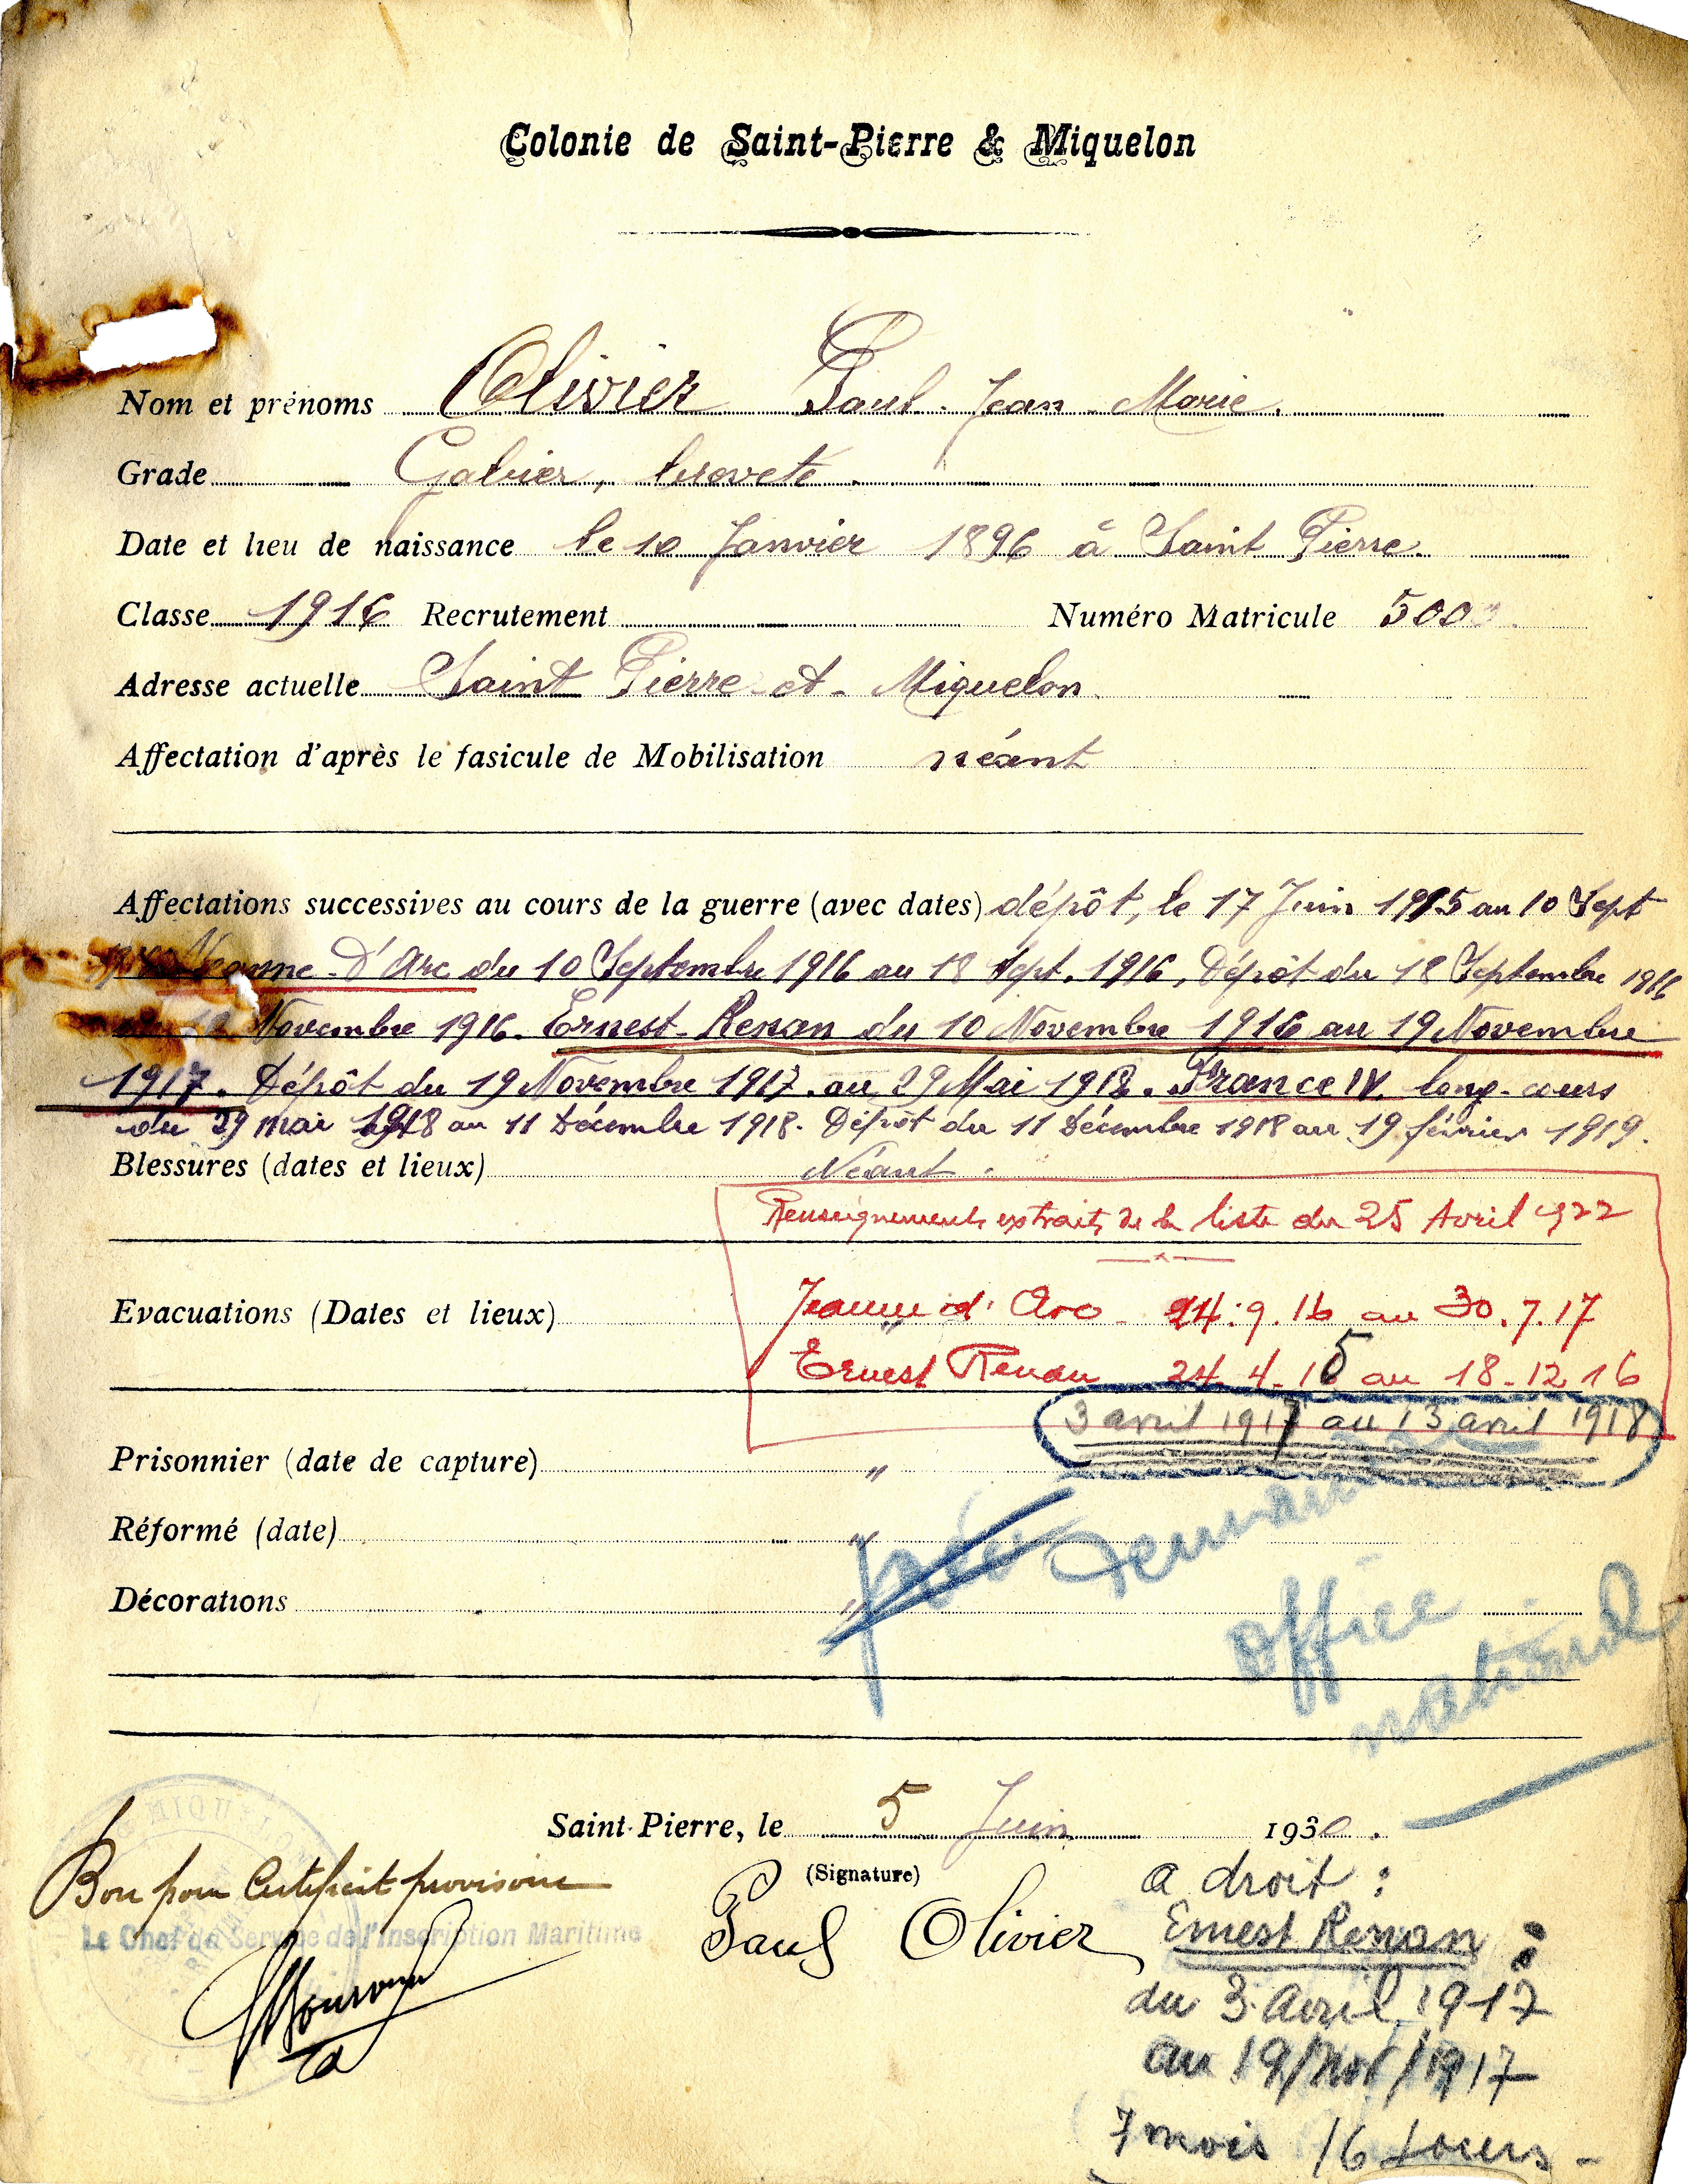 Colonie de Saint-Pierre & Miquelon
Nom et prénoms Olivier Paul Jean Marie.
Grade Gabier, breveté.
Date et lieu de naissance le 10 Janvier 1896 à Saint Pierre.
Classe 1916 Recrutement Numéro Matricule 500
Adresse actuelle Saint Pierre et Miquelon.
Affectation d'après le fasicule de Mobilisation néant
Affectations successives au cours de la guerre (avec dates) dépôt, le 17 Juin 1915 au 10 Sept
Jeanne-D'Arc du 10 Septembre 1916 au 18 Sept. 1916, Dépôt du 18 Septembre 1916
Novembre 1916. Ernest-Renan du 10 Novembre 1916 au 19 Novembre
1917. Dépôt du 19 Novembre 1917 au 29 Mai 1918. France IV. long-cours
du 29 mai 1918 au 11 Décembre 1918. Dépôt du 11 Décembre 1918 au 19 février 1919.
Blessures (dates et lieux) Néant.
Renseignements extraits de la liste du 25 Avril 1922
Evacuations (Dates et lieux) Jeanne d'Arc - 24.9.16 au 30.7.17
Ernest Renan 24-4-15 au 18-12 16
3 avril 1917 au 13 avril 1918
Prisonnier (date de capture) "
Réformé (date) "
Décorations "
Demande
office
national
Saint-Pierre, le 5 Juin 1930.
(Signature)
Bon pour Certificat provisoire
Le Chef du Service de l'Inscription Maritime
Paul Olivier
a droit :
Ernest Renan :
du 3 Avril 1917
au 19/Nov/1917
7 mois 16 Jours -